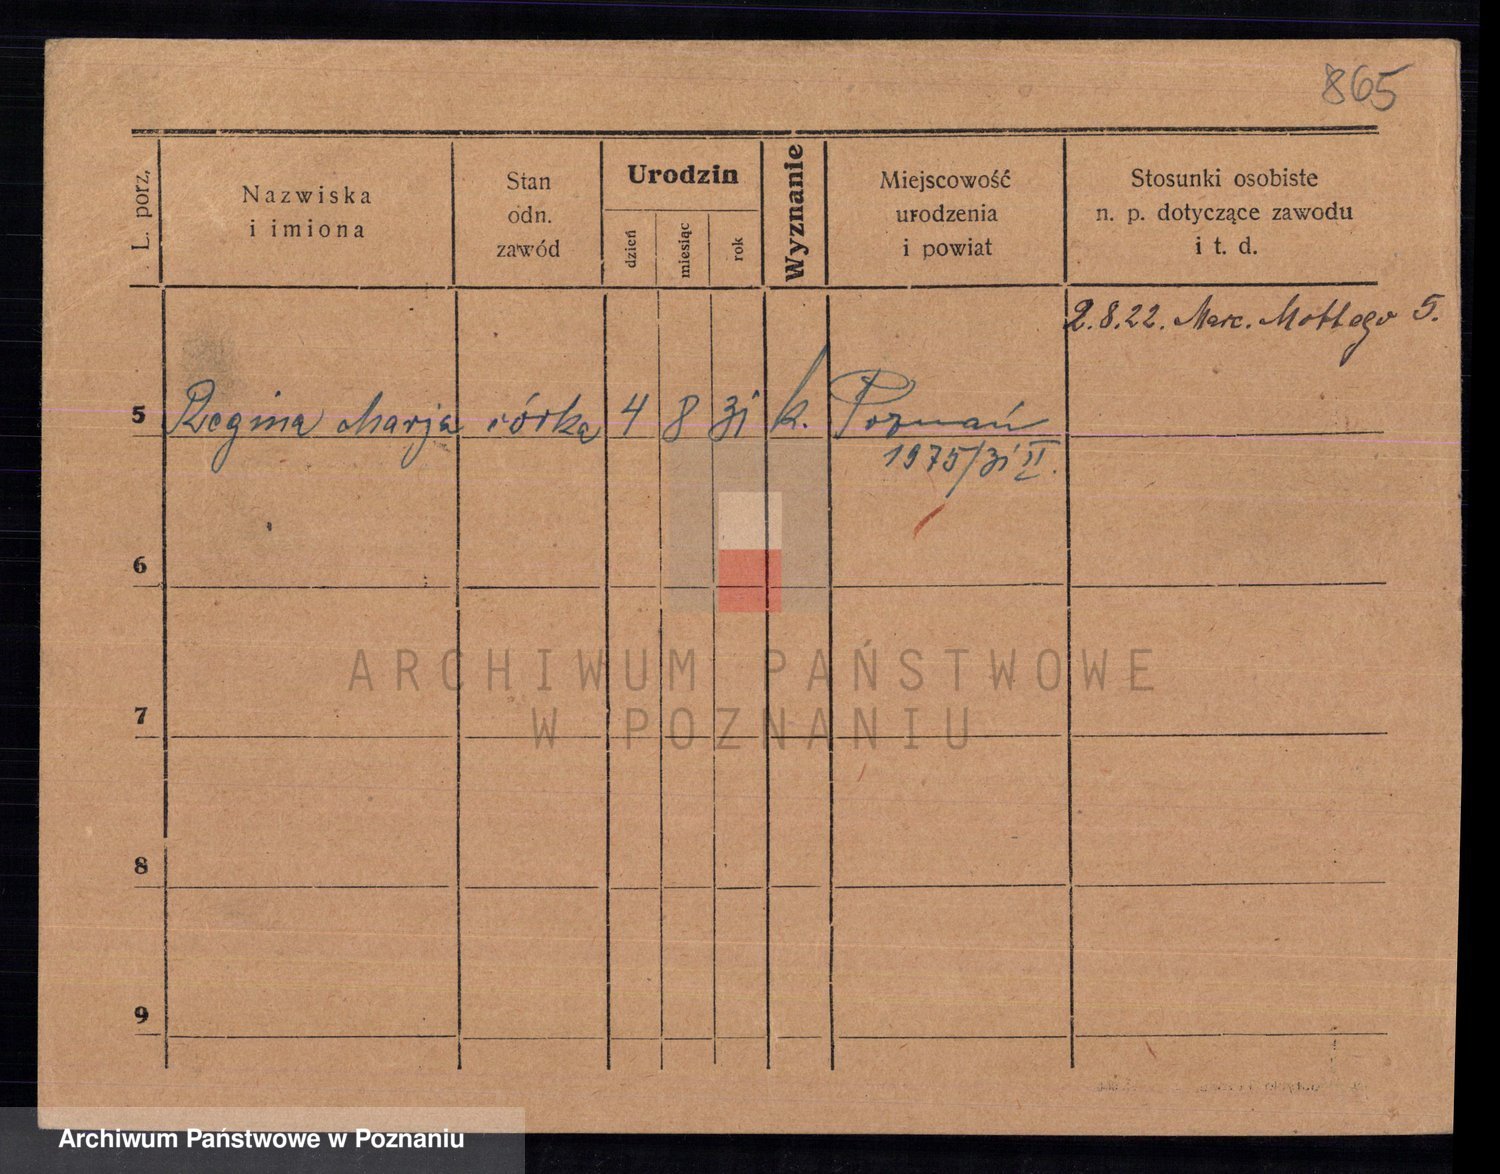 865
L. porz.
Nazwiska
i imiona
Stan
odn.
zawód
Urodzin
dzień
miesiąc
rok
Wyznanie
Miejscowość
urodzenia
i powiat
Stosunki osobiste
n. p. dotyczące zawodu
i t. d.
2.8.22. Marc. Mottego 5.
5 Regina Marja córka 4 8 31 k. Poznań
1975/31 II.
6
7
8
9
ARCHIWUM PAŃSTWOWE
W POZNANIU
Archiwum Państwowe w Poznaniu